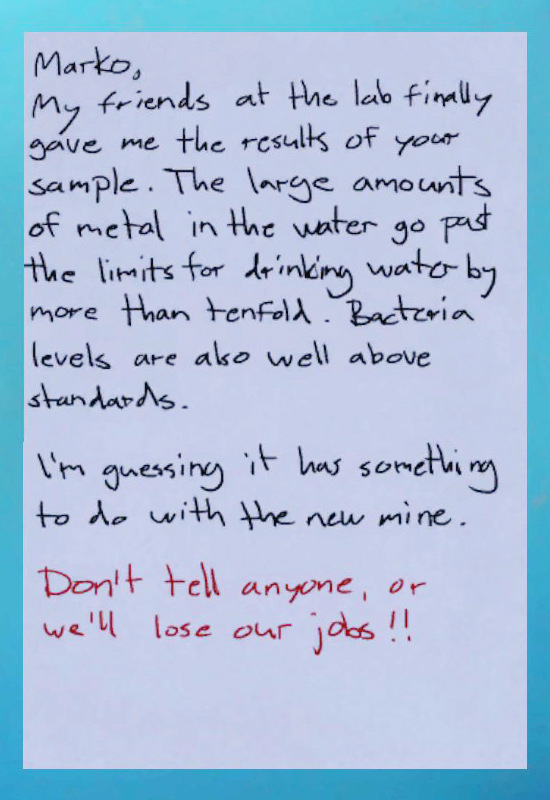 Marko,
My friends at the lab finally
gave me the results of your
sample. The large amounts
of metal in the water go past
the limits for drinking water by
more than tenfold. Bacteria
levels are also well above
standards.
I'm guessing it has something
to do with the new mine.
Don't tell anyone, or
we'll lose our jobs!!